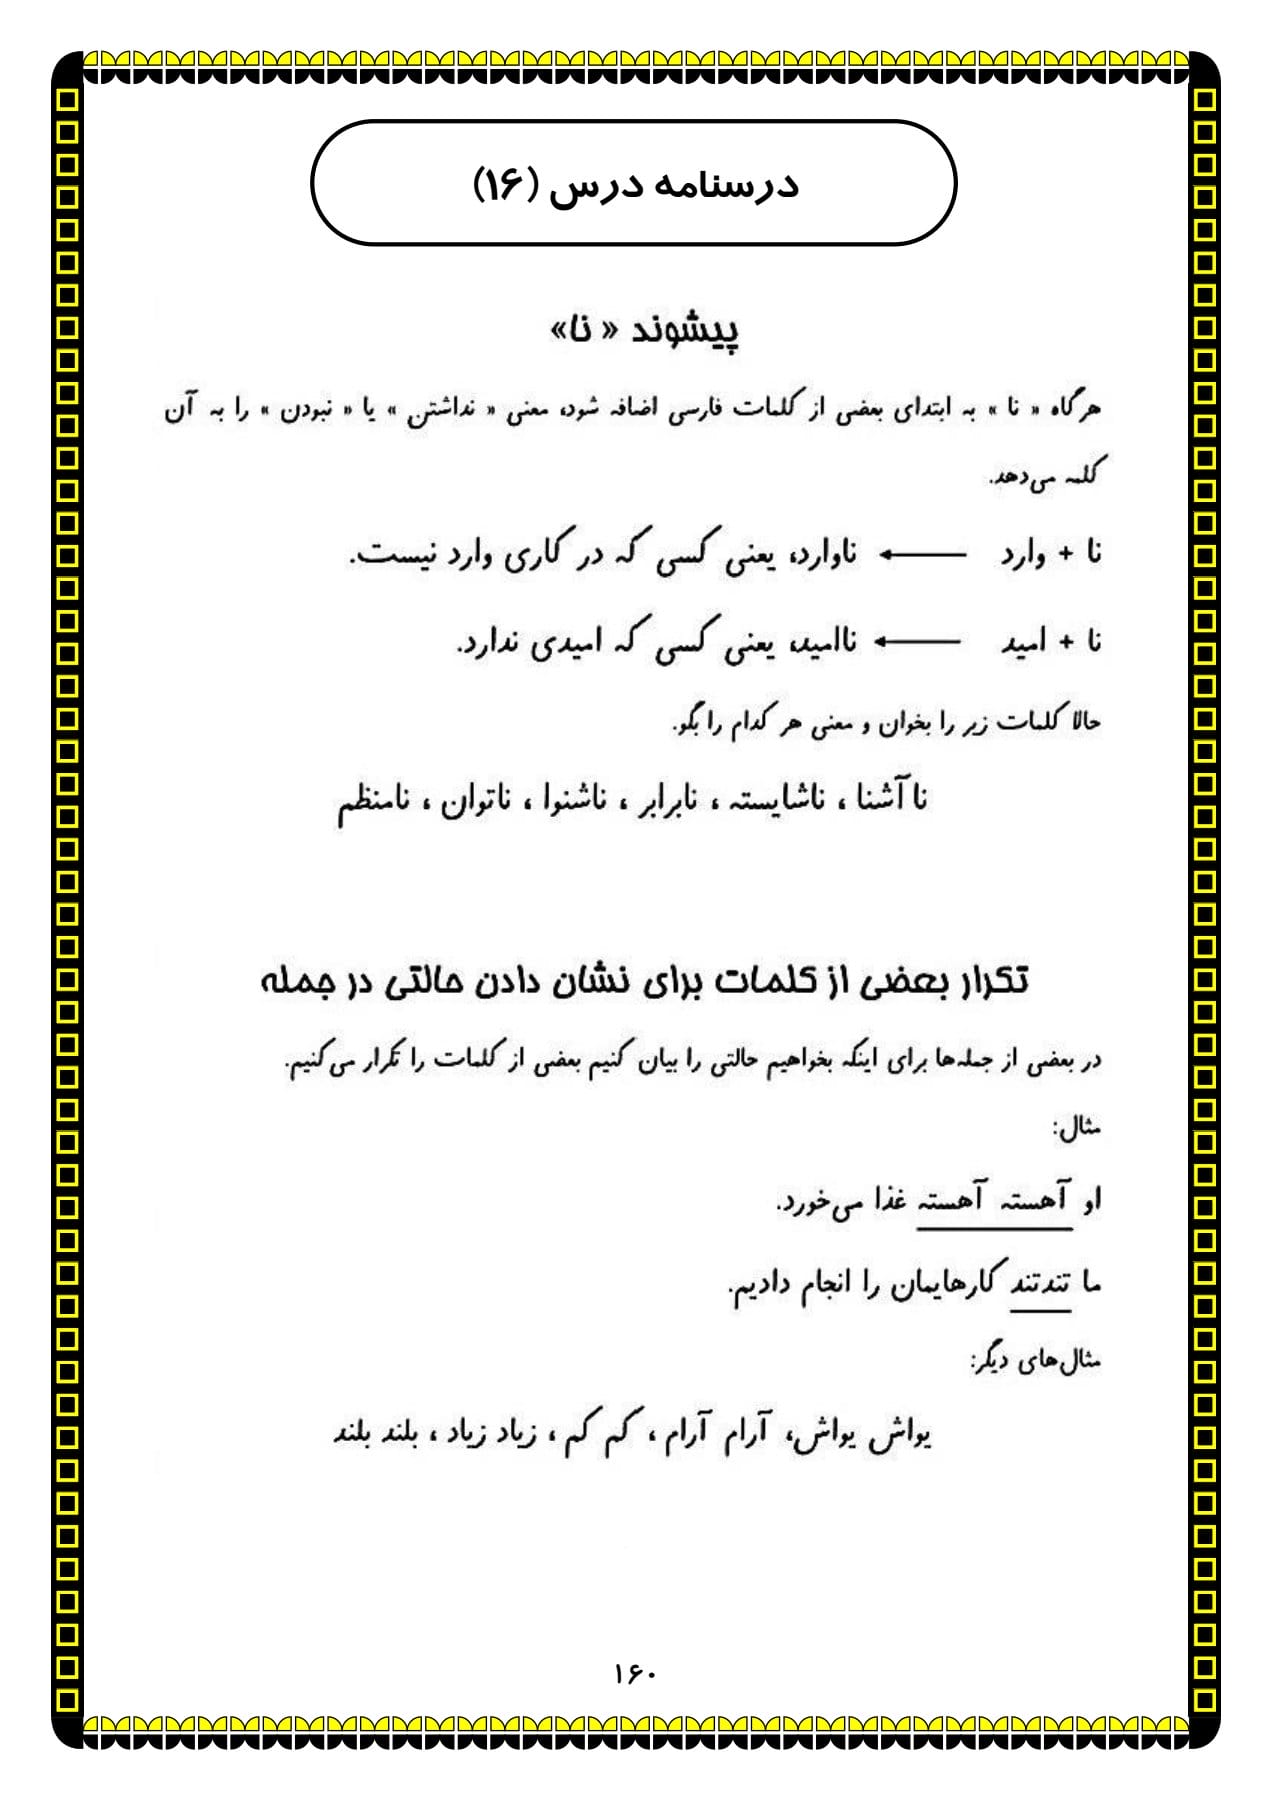 درسنامه درس (۱۶)
پیشوند « نا»
هرگاه « نا » به ابتدای بعضی از کلمات فارسی اضافه شود، معنی « نداشتن » یا « نبودن » را به آن
کلمه می‌دهد.
نا + وارد ← ناوارد، یعنی کسی که در کاری وارد نیست.
نا + امید ← ناامید، یعنی کسی که امیدی ندارد.
حالا کلمات زیر را بخوان و معنی هر کدام را بگو.
نا آشنا ، ناشایسته ، نابرابر ، ناشنوا ، ناتوان ، نامنظم
تکرار بعضی از کلمات برای نشان دادن حالتی در جمله
در بعضی از جمله‌ها برای اینکه بخواهیم حالتی را بیان کنیم بعضی از کلمات را تکرار می‌کنیم.
مثال:
او آهسته آهسته غذا می‌خورد.
ما تندتند کارهایمان را انجام دادیم.
مثال‌های دیگر:
یواش یواش، آرام آرام ، کم کم ، زیاد زیاد ، بلند بلند
۱۶۰